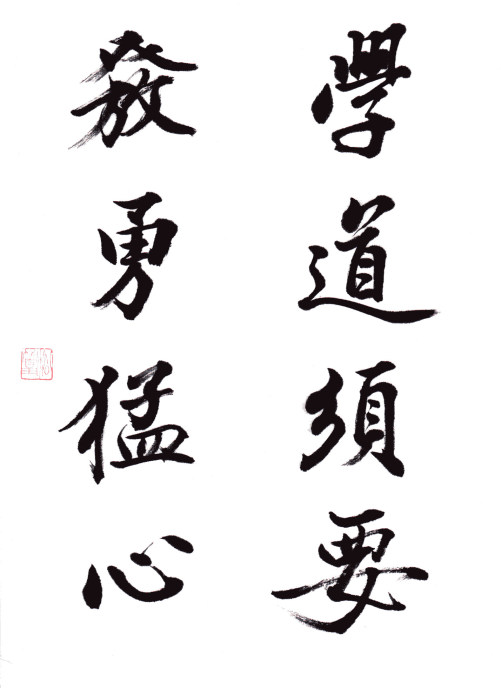 學道須要
發勇猛心